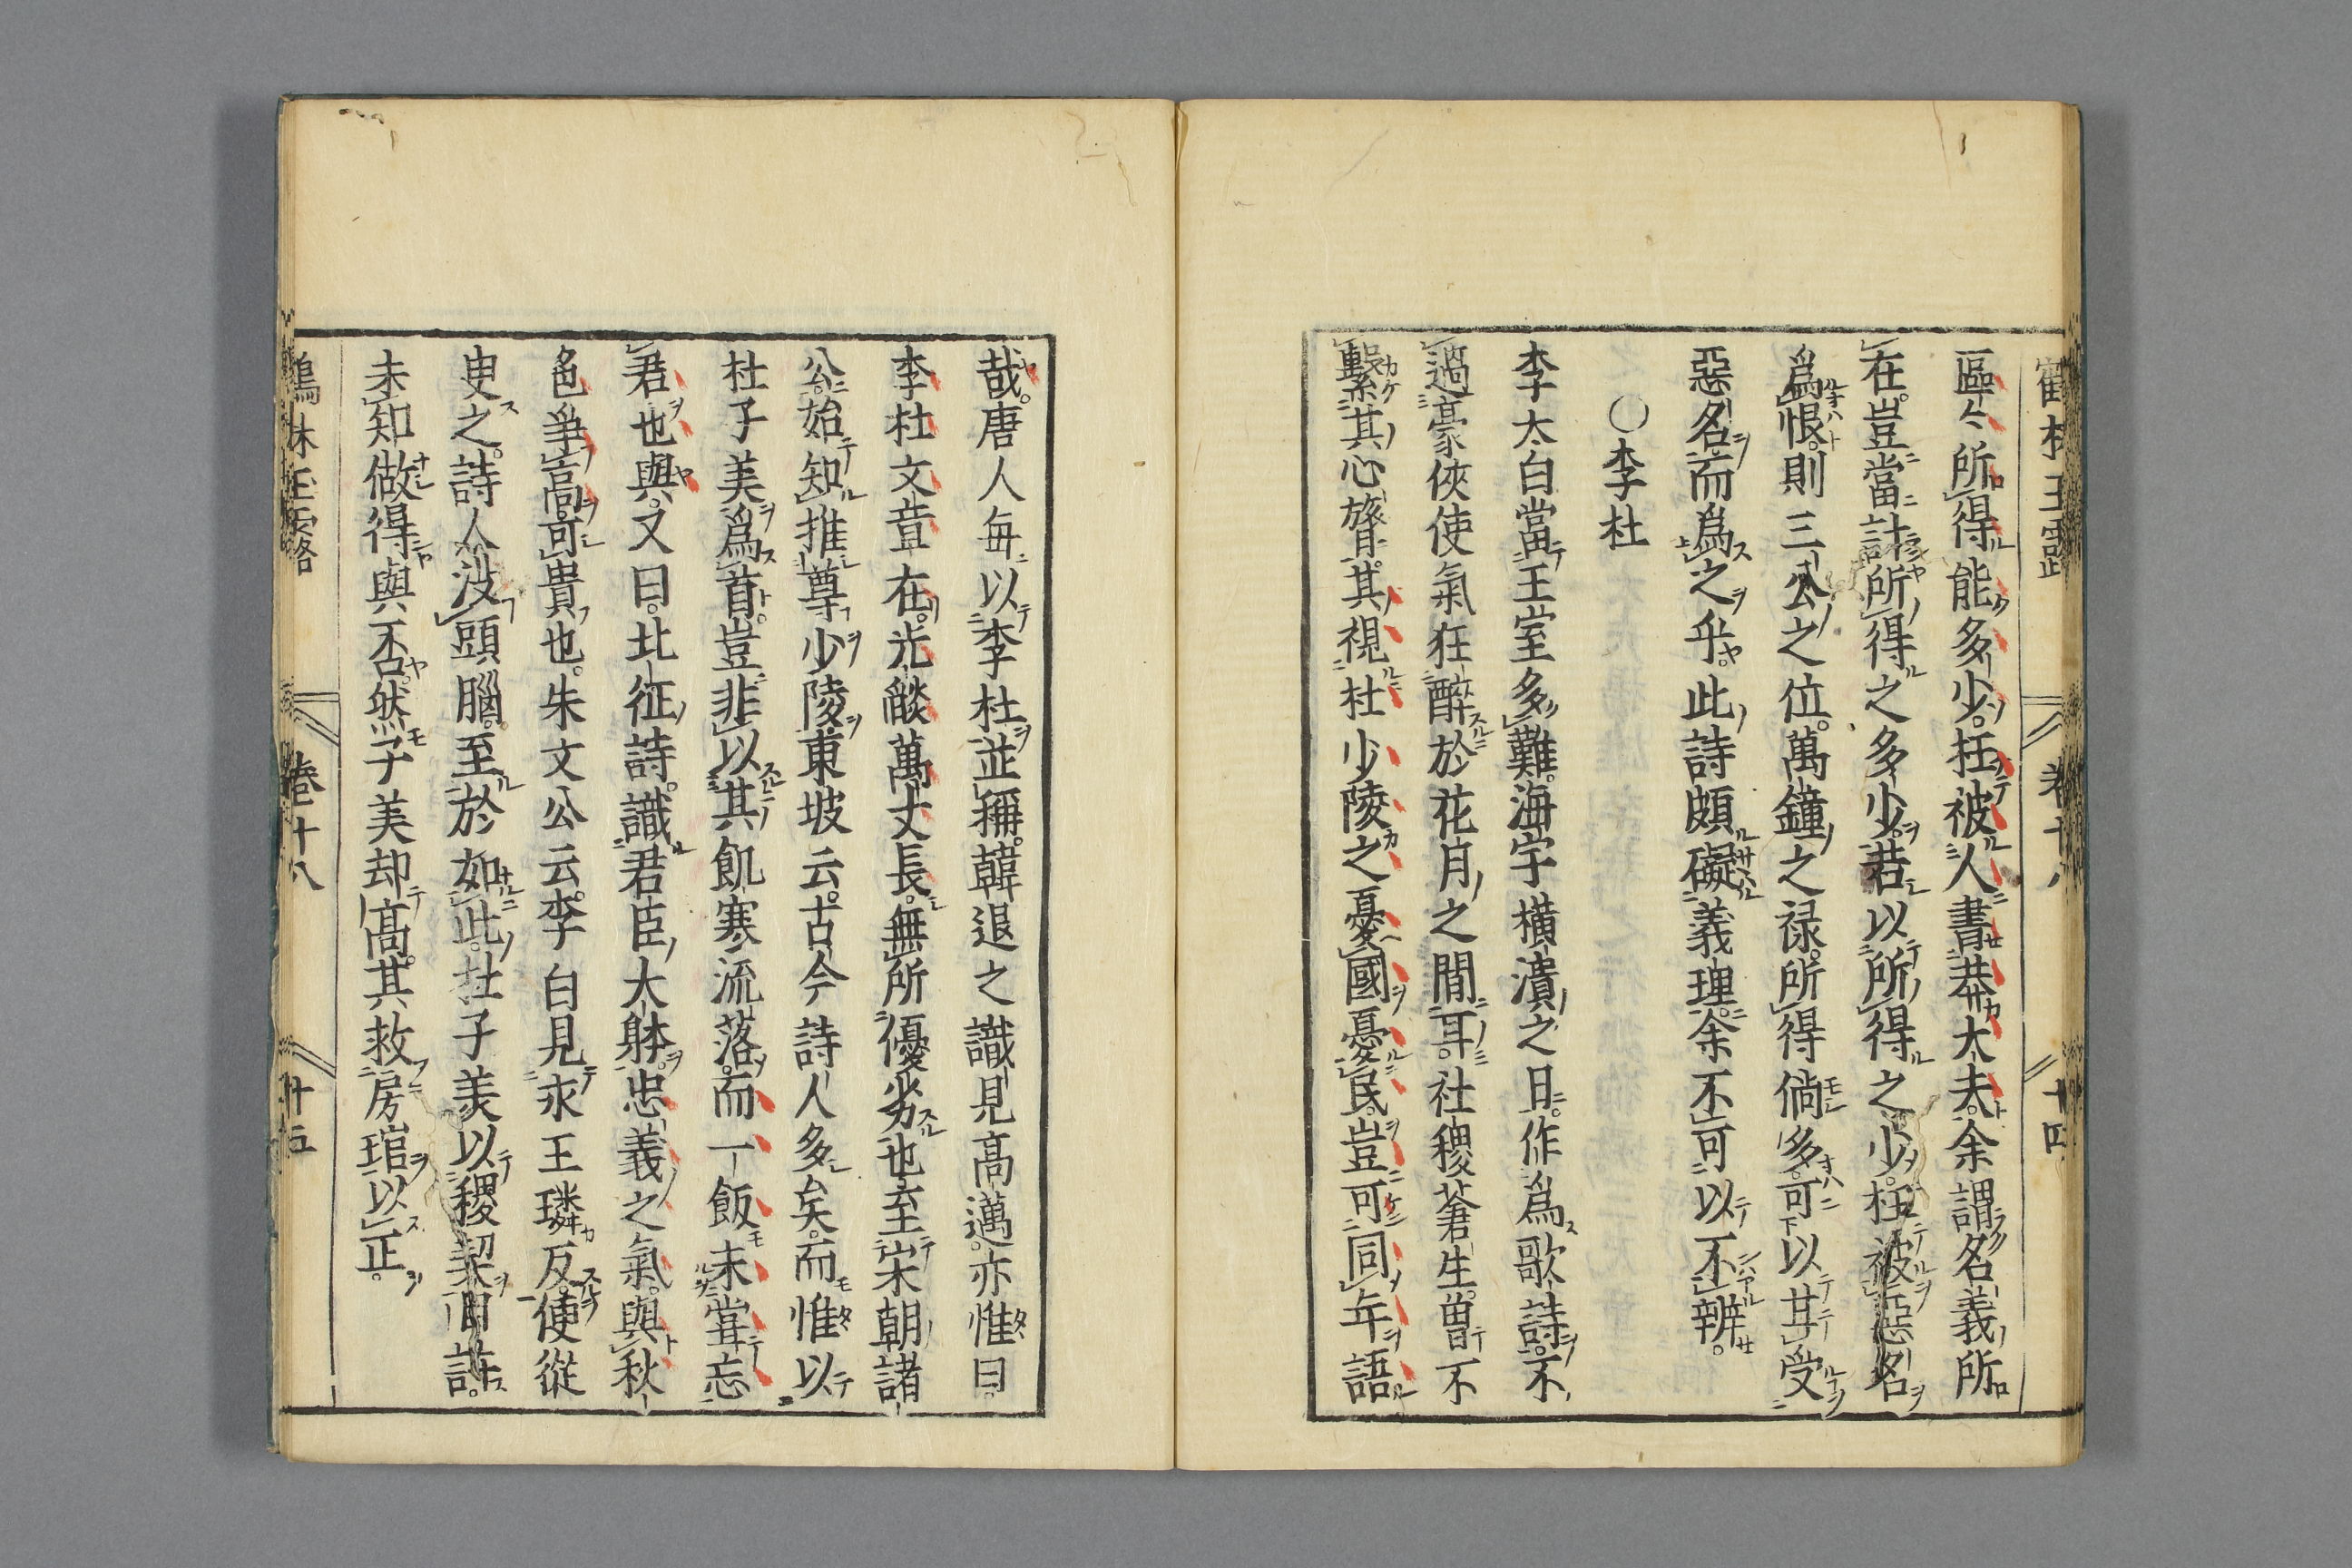 鶴林玉露 卷十八 十四
區〻所得能多少。枉被人書莽大夫。余謂名義所
在。豈當計所得之多少。若以所得之少。枉被惡名
爲恨。則三公之位。萬鐘之禄。所得倘多。可以甘受
惡名。而爲之乎。此詩頗礙義理。余不可以不辨。
○李杜
李太白當王室多難。海宇横潰之日。作爲歌詩。不
過豪俠使氣狂醉於花月之間耳。社稷蒼生。曾不
繫其心膂。其視杜少陵之憂國憂民。豈可同年語
哉。唐人每以李杜並稱。韓退之識見高邁。亦惟曰
李杜文章在。光燄萬丈長。無所優劣也。至宋朝諸
公。始知推尊少陵。東坡云。古今詩人多矣。而惟以
杜子美爲首。豈非以其飢寒流落。而一飯未嘗忘
君也與。又曰。北征詩。識君臣大躰。忠義之氣。與秋
色爭高。可貴也。朱文公云。李白見永王璘反。便從
臾之。詩人没頭腦。至於如此。杜子美以稷契自許。
未知做得與不否。然子美却高。其救房琯以正。
鶴林玉露 卷十八 十五